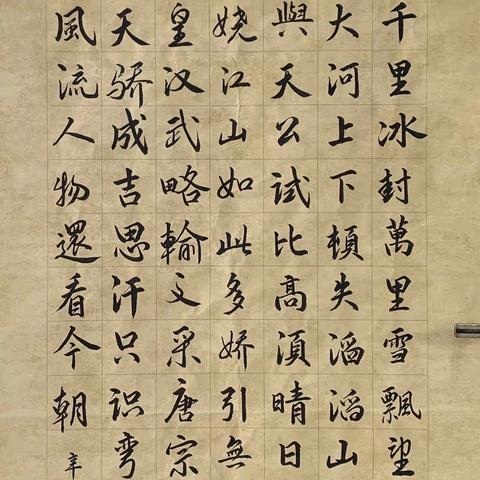 千里冰封萬里雪飄望
大河上下頓失滔滔山
與天公試比高須晴日
娆江山如此多娇引無
皇汉武略輸文采唐宗
天骄成吉思汗只识弯
風流人物還看今朝辛